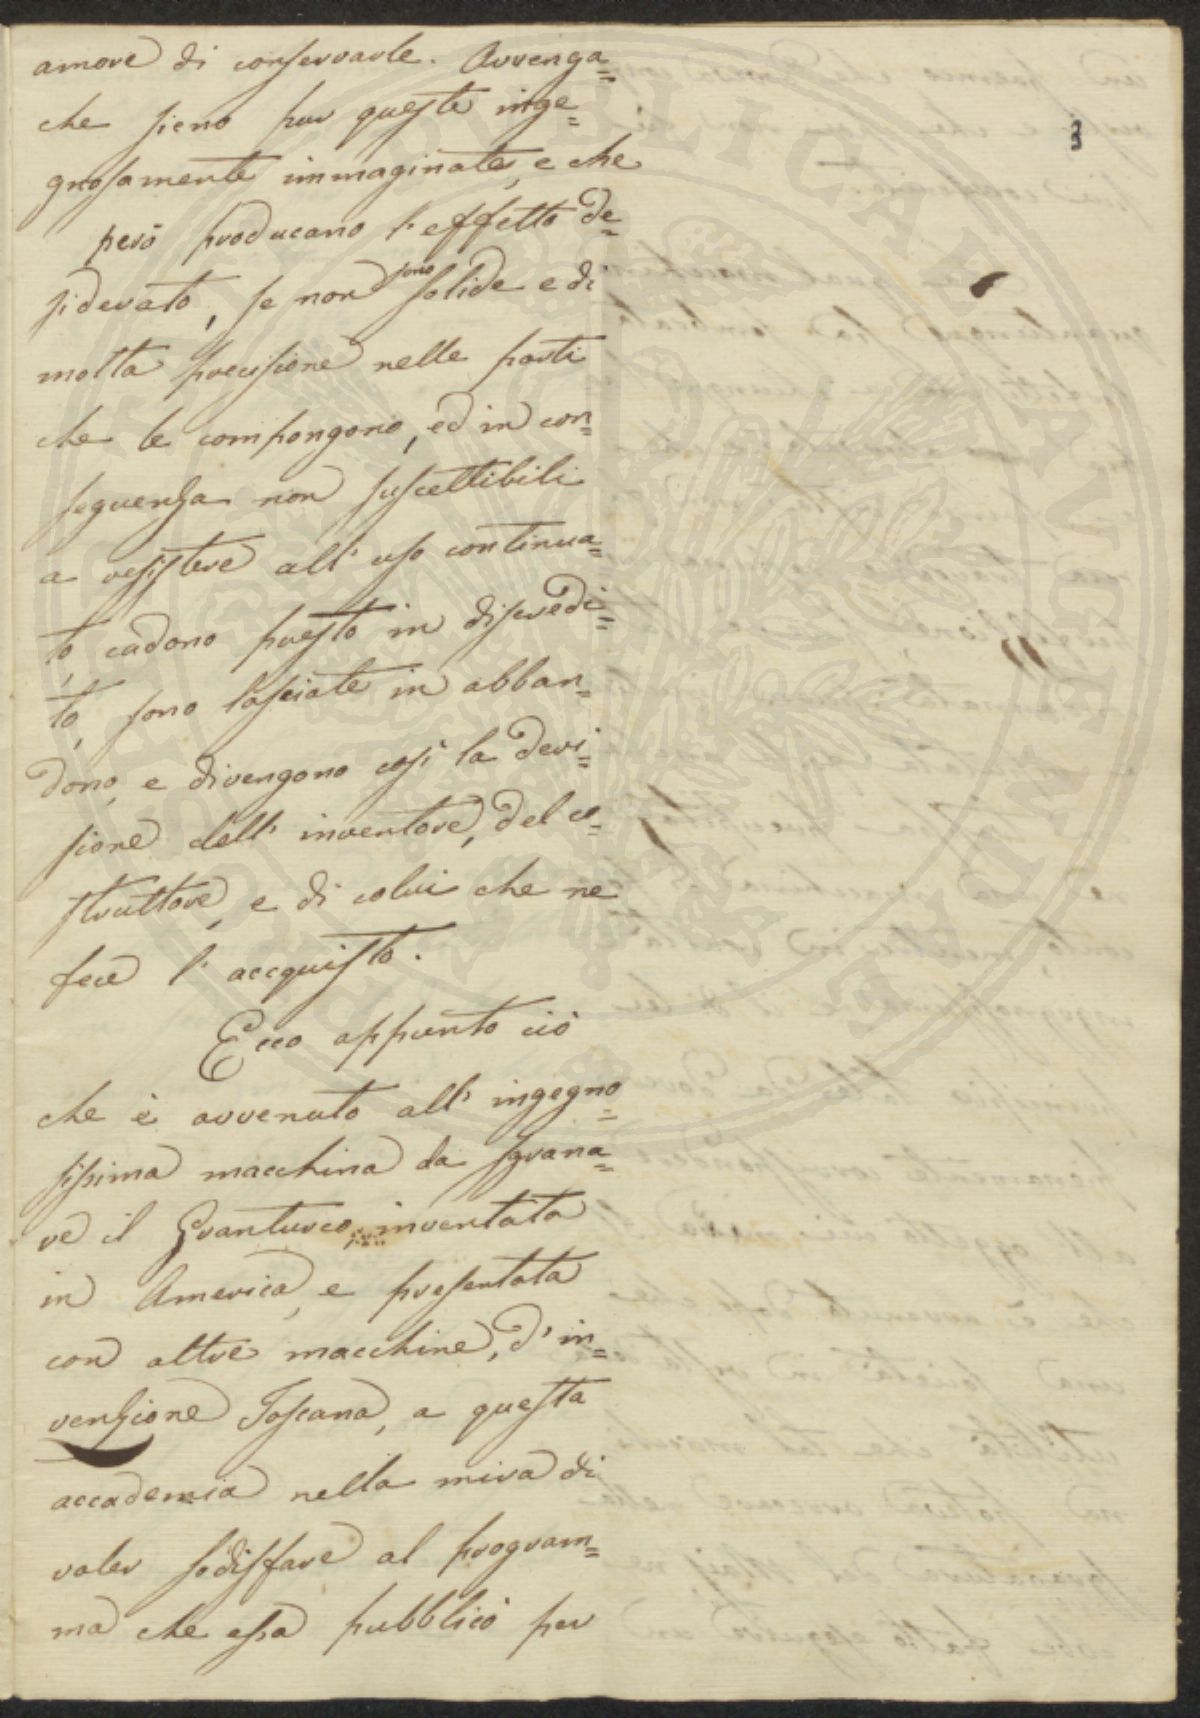 amore di conservarle. Avvenga=
3
che sieno pur queste inge=
gnosamente immaginate, e che
però producano l'effetto de=
siderato, se non sono solide e di
molta precisione nelle parti
che le compongono, ed in con=
seguenza non suscettibili
a resistere all' uso continua=
to, cadono presto in discredi=
to, sono lasciate in abban=
dono, e divengono così la deri=
sione dell' inventore, del co=
struttore, e di colui che ne
fece l' accquisto.
Ecco appunto ciò
che è avvenuto all' ingegno=
sissima macchina da sgrana=
re il Granturco, inventata
in America, e presentata
con altre macchine, d' in=
venzione Toscana, a questa
accademia nella mira di
voler sodisfare al program=
ma che essa pubblicò per